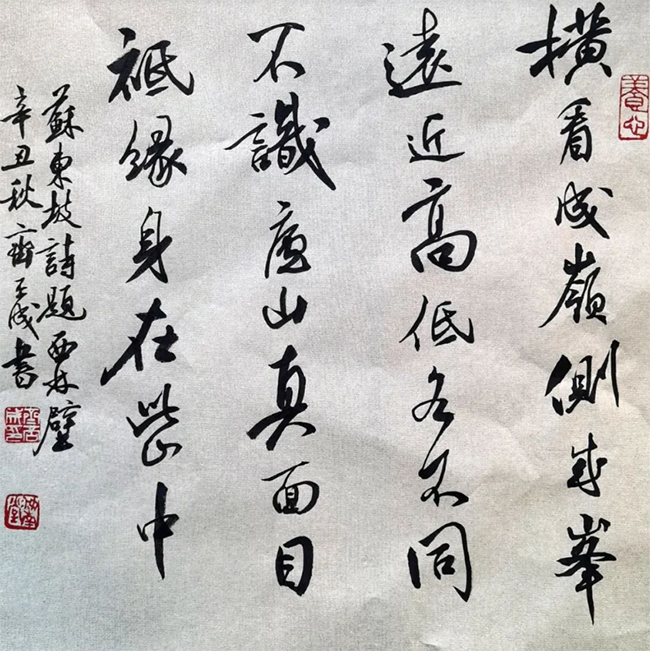 養心
橫看成嶺側成峯
遠近高低各不同
不識廬山真面目
祗緣身在此山中
蘇東坡詩題西林壁
辛丑秋齊成書